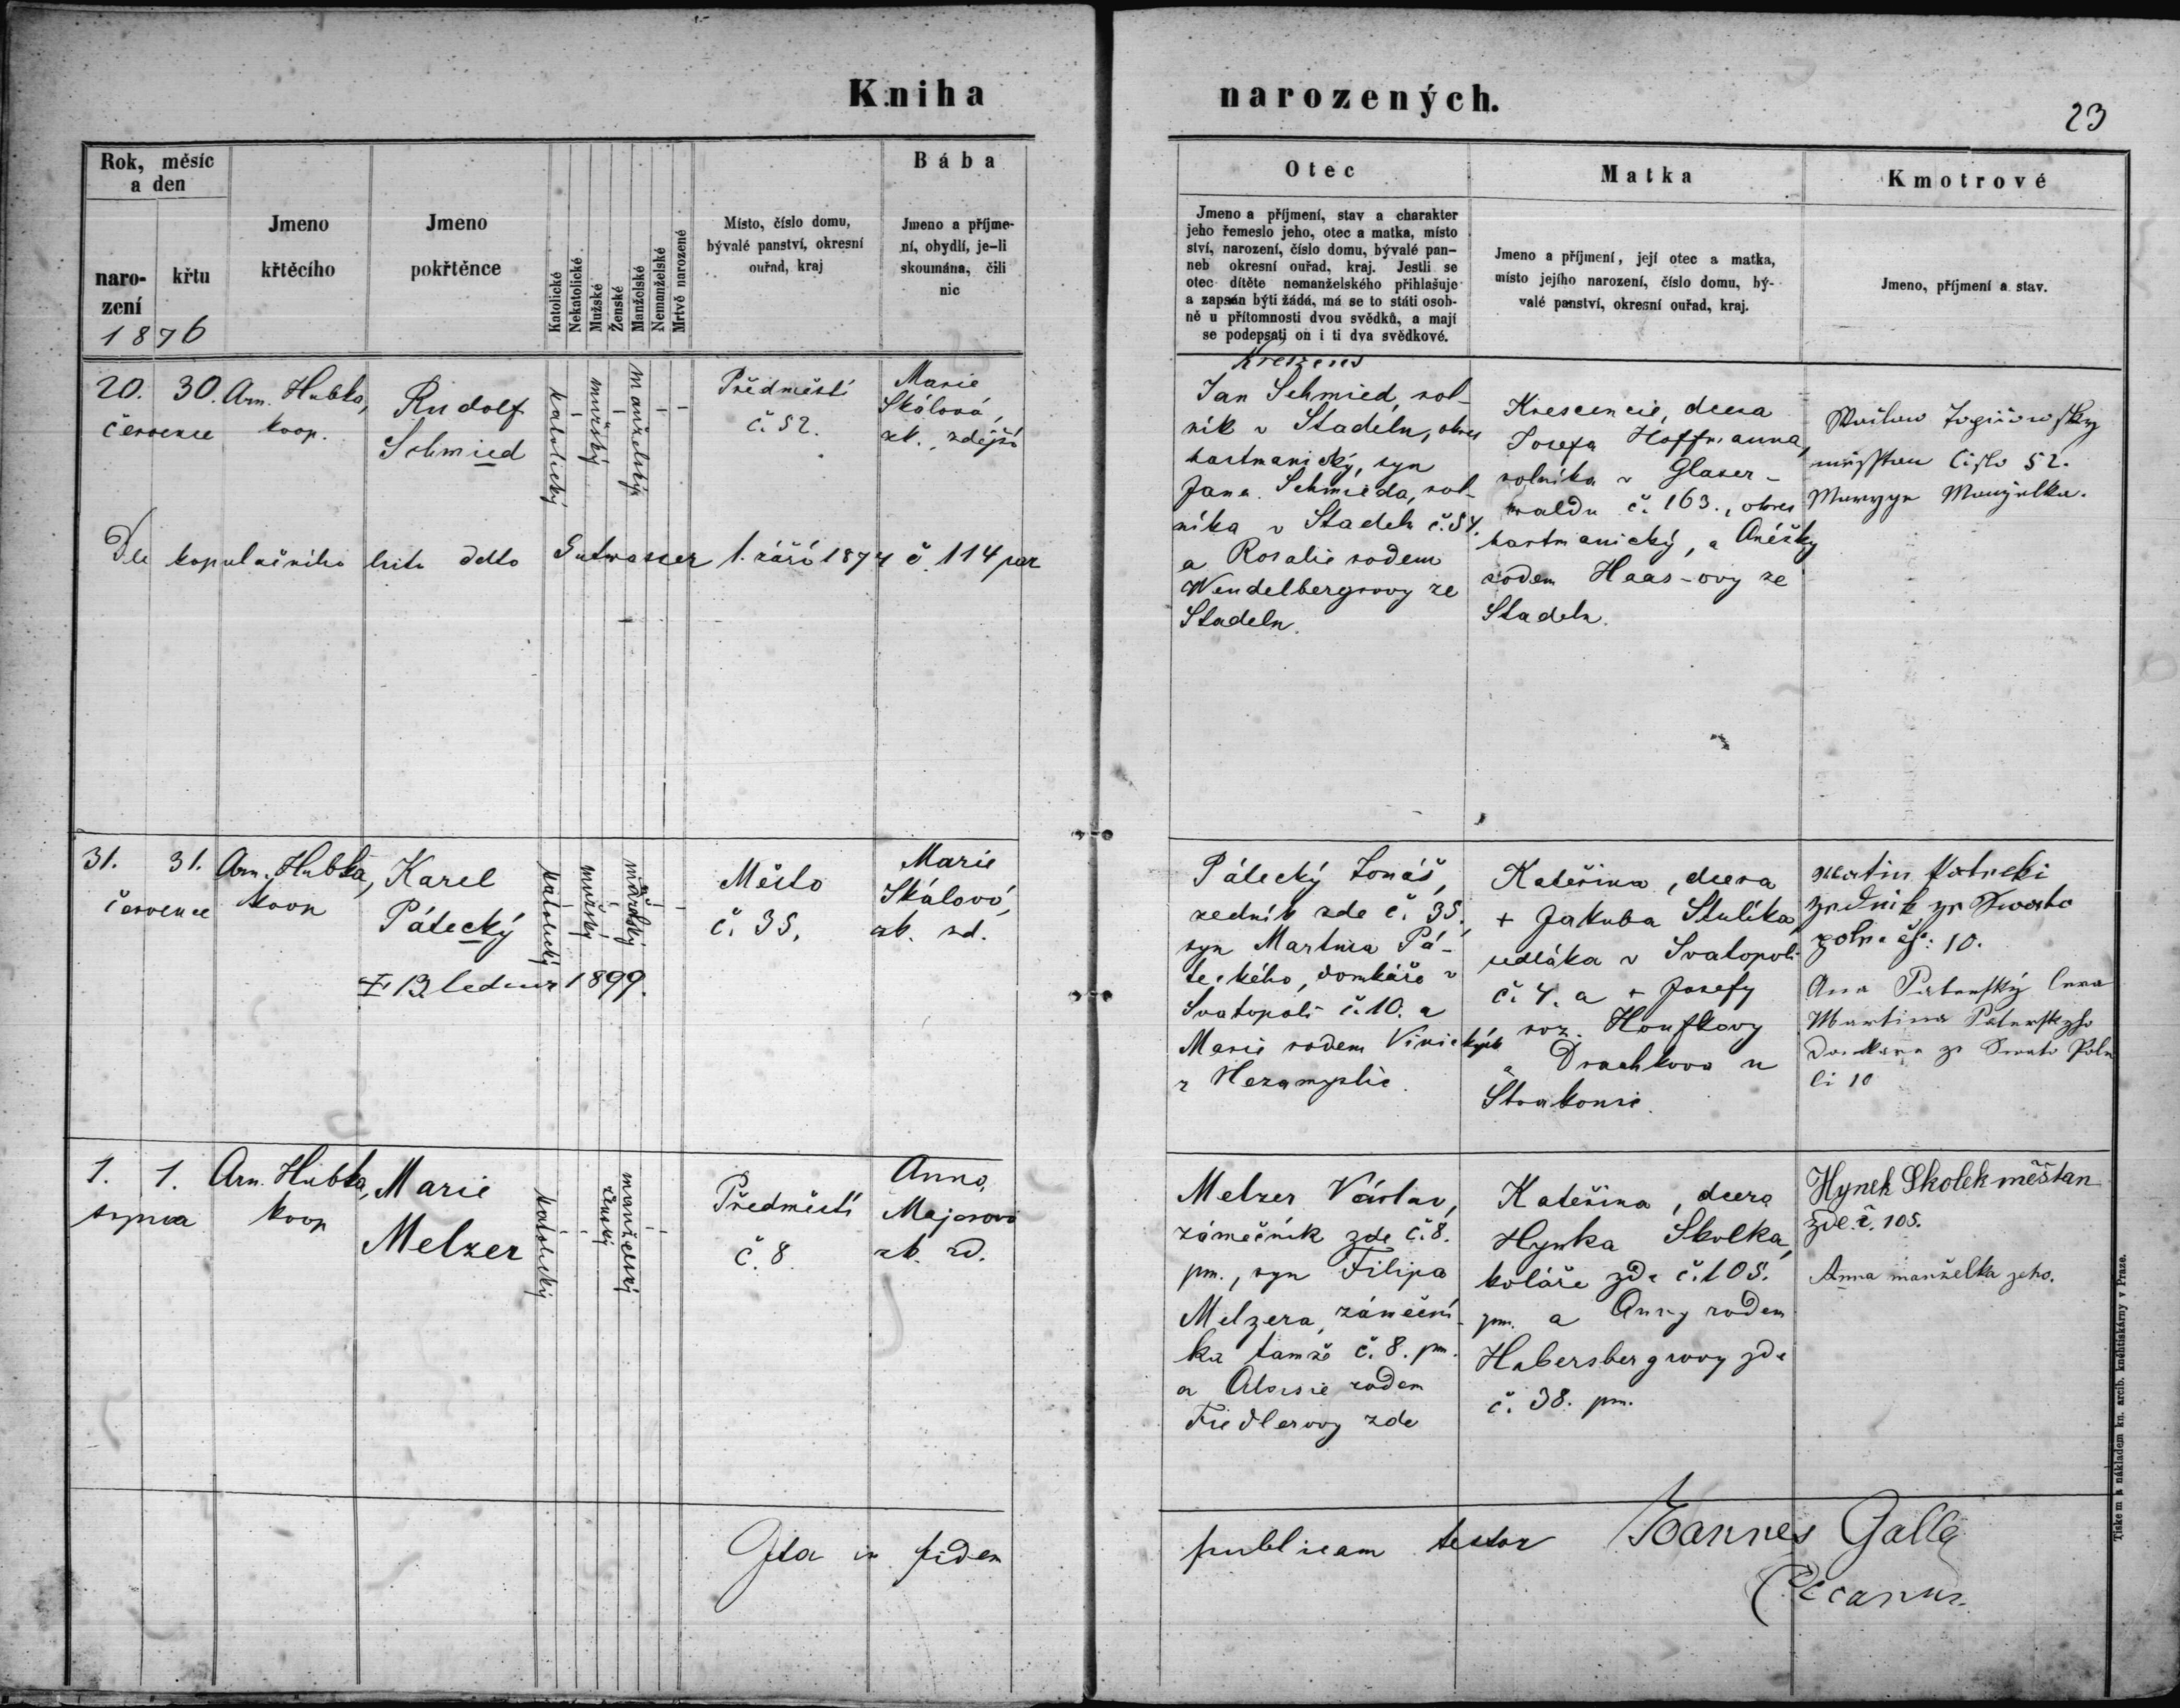 Kniha narozených.
23
Rok, měsíc
a den
naro-
zení
křtu
1876
Jmeno
křtěcího
Jmeno
pokřtěnce
Katolické
Nekatolické
Mužské
Ženské
Manželské
Nemanželské
Mrtvě narozené
Místo, číslo domu,
bývalé panství, okresní
ouřad, kraj
Bába
Jmeno a příjme-
ní, obydlí, je-li
skoumána, čili
nic
Otec
Jmeno a příjmení, stav a charakter
jeho řemeslo jeho, otec a matka, místo
ství, narození, číslo domu, bývalé pan-
neb okresní ouřad, kraj. Jestli se
otec dítěte nemanželského přihlašuje
a zapsán býti žádá, má se to státi osob-
ně u přítomnosti dvou svědků, a mají
se podepsati on i ti dva svědkové.
Matka
Jmeno a příjmení, její otec a matka,
místo jejího narození, číslo domu, bý-
valé panství, okresní ouřad, kraj.
Kmotrové
Jmeno, příjmení a stav.
20. 30.
července
Arn. Hubka,
koop.
Rudolf
Schmied
katolický
mužský
manželský
Předměstí
č. 52.
Marie
Skálová,
zk. zdejší
Dle kopulačního listu ddto Gutwasser 1. září 1874 č. 114
Jan Schmied, rol-
ník v Stadeln, okres
hartmanický, syn
Jana Schmieda, rol-
níka v Stadeln č. 54.
a Rosalie rodem
Wendelbergrovy ze
Stadeln.
Krescencie, dcera
Josefa Hoffmanna,
rolníka v Glaser-
waldu č. 163., okres
hartmanický, a Anéžky
rodem Haas-ovy ze
Stadeln.
52.
31. 31.
července
Arn. Hubka,
koop
Karel
Pátecký
13. ledna 1899.
katolický
mužský
manželský
Město
č. 35.
Marie
Skálová,
zk. zd.
Pátecký Tomáš,
zedník zde č. 35.,
syn Martina Pá-
teckého, domkáře v
Svatopoli č. 10. a
Marie rodem Vinických
z Nezamyslic.
Kateřina, dcera
+ Jakuba Stulíka,
sedláka v Svatopoli
č. 4. a + Josefy
roz. Houfkovy
z Drachkova u
Strakonic.
10.
Martina
10
1. 1.
srpna
Arn. Hubka,
koop
Marie
Melzer
katolický
ženský
manželský
Předměstí
č. 8
Anna
Majerová
zk. zd.
Melzer Václav,
zámečník zde č. 8.
pm., syn Filipa
Melzera, zámeční-
ka tamže č. 8. pm.
a Aloisie rodem
Fiedlerovy zde
Kateřina, dcera
Hynka Skolka,
koláře zde č. 105.
pm. a Anny rodem
Habersbergrovy zde
č. 38. pm.
Hynek Skolek měšťan
zde č. 105.
Anna manželka jeho.
Ita in fidem publicam testor Joannes Galla
Decanus.
Tiskem a nákladem kn. arcib. kněhtiskárny v Praze.